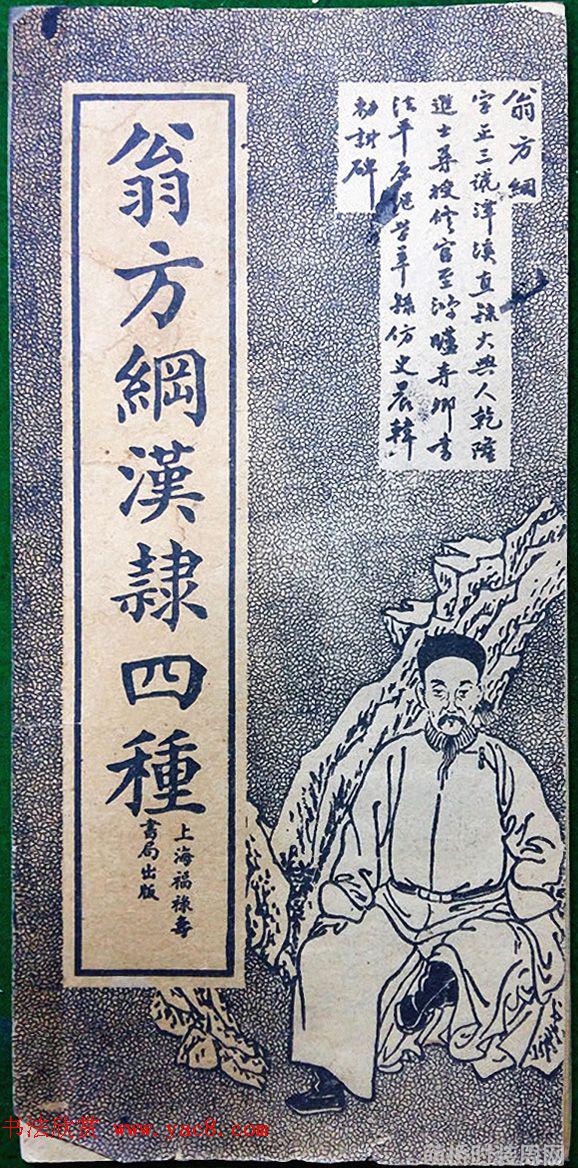 翁方綱
字正三號潭溪直隸大興人乾隆
進士尋授修官至鴻臚寺卿書
法平原繼學率隸仿史晨韓
勅封碑
翁方綱漢隸四種
上海福祿壽
書局出版
书法欣赏 www.yac8.com